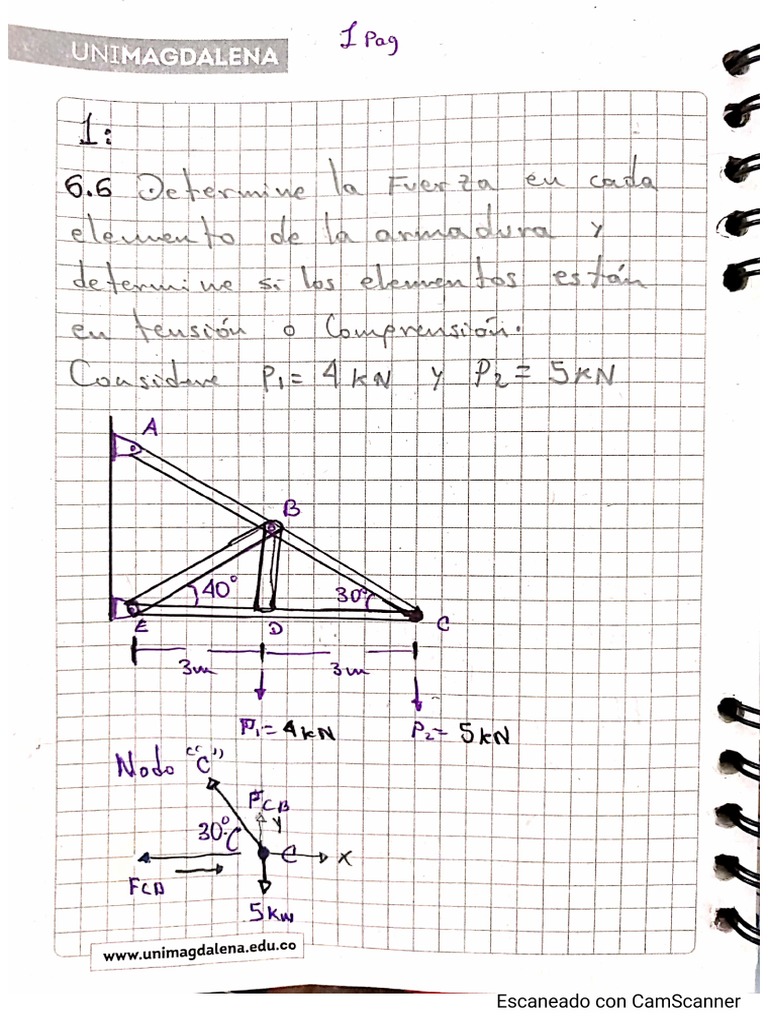 UNIMAGDALENA
1 Pag
1:
6.6 Determine la Fuerza en cada
elemento de la armadura y
determine si los elementos están
en tensión o Comprensión.
Considere P1 = 4 kN y P2 = 5 kN
A
B
40°
30°
E
D
C
3m
3m
P1 = 4 kN
P2 = 5 kN
Nodo "C"
FCB
y
30°
C
x
FCD
5 kN
www.unimagdalena.edu.co
Escaneado con CamScanner